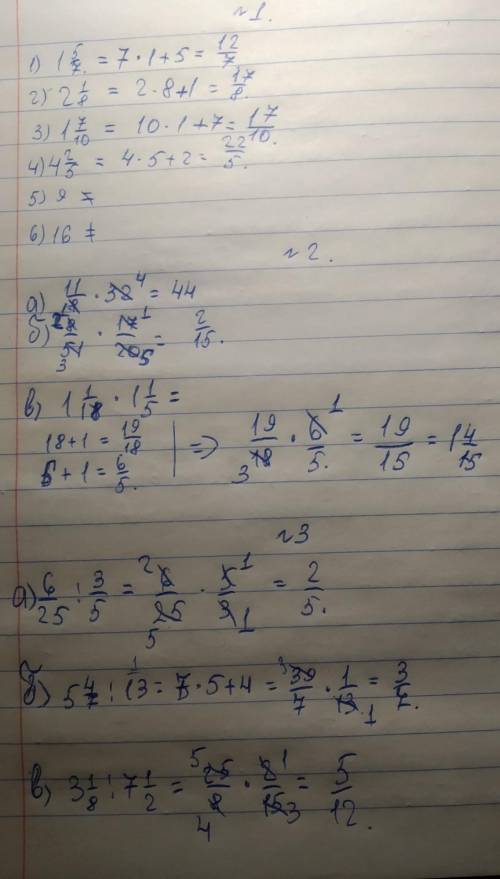 №1.
1) 1 5/7 = 7·1+5 = 12/7
2) 2 1/8 = 2·8+1 = 17/8.
3) 1 7/10 = 10·1+7 = 17/10.
4) 4 2/5 = 4·5+2 = 22/5.
5) 9 =
6) 16 =
№2.
а) 11/· 4 = 44
б) 2 3 · 17 1/20 5 = 2/15.
в) 1 1/18 · 1 1/5 =
18+1 = 19/18
5+1 = 6/5. | => 19/18 3 · 6 1/5. = 19/15 = 1 4/15
№3
а) 6/25 : 3/5 = 2 6/25 5 · 5 1/3 1 = 2/5.
б) 5 4/7 : 1/13 = 7·5+4 = 3 39/7 · 1/13 1 = 3/7.
в) 3 1/8 : 7 1/2 = 5 25/8 4 · 1/15 3 = 5/12.